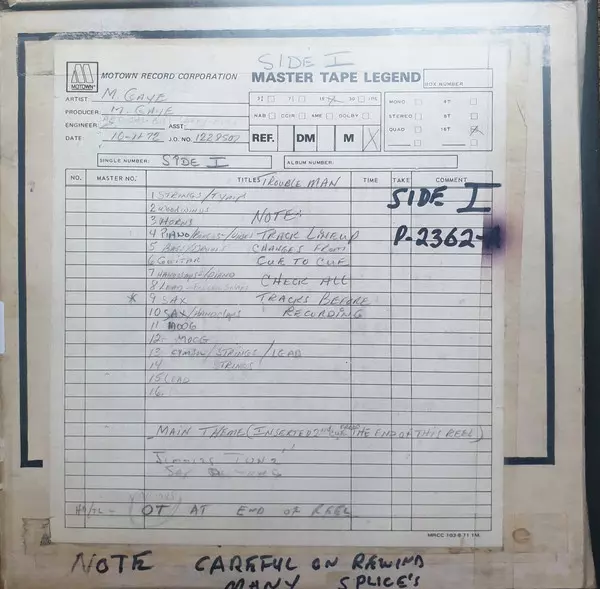 SIDE I
MOTOWN RECORD CORPORATION MASTER TAPE LEGEND BOX NUMBER
MOTOWN
ARTIST M. GAYE
PRODUCER M. GAYE
ENGINEER ASST.
DATE 10-11-72 J.O. NO.
3¾ 7½ 15 30 IPS
NAB CCIR AME DOLBY
REF. DM M X
MONO 8T
STEREO
QUAD 16T
SINGLE NUMBER: SIDE I ALBUM NUMBER:
NO. MASTER NO. TITLES TROUBLE MAN TIME TAKE COMMENT
SIDE I
P-2362-
1 STRINGS/TYMP
2 WOODWINDS
3 HORNS NOTE:
4 PIANO/ TRACK LINEUP
5 BASS/DRUMS CHANGES FROM
6 GUITAR CUE TO CUE
7 HANDCLAPS/PIANO CHECK ALL
8 LEAD
* 9 SAX TRACKS BEFORE
10 SAX/HANDCLAPS RECORDING
11 MOOG
12 MOOG
13 /STRINGS/LEAD
14 STRINGS
15 LEAD
16
MAIN THEME (INSERTED THE END OF THIS REEL)
OT AT END OF REEL
MRCC 103-8 71 1M
NOTE CAREFUL ON REWIND
MANY SPLICE'S